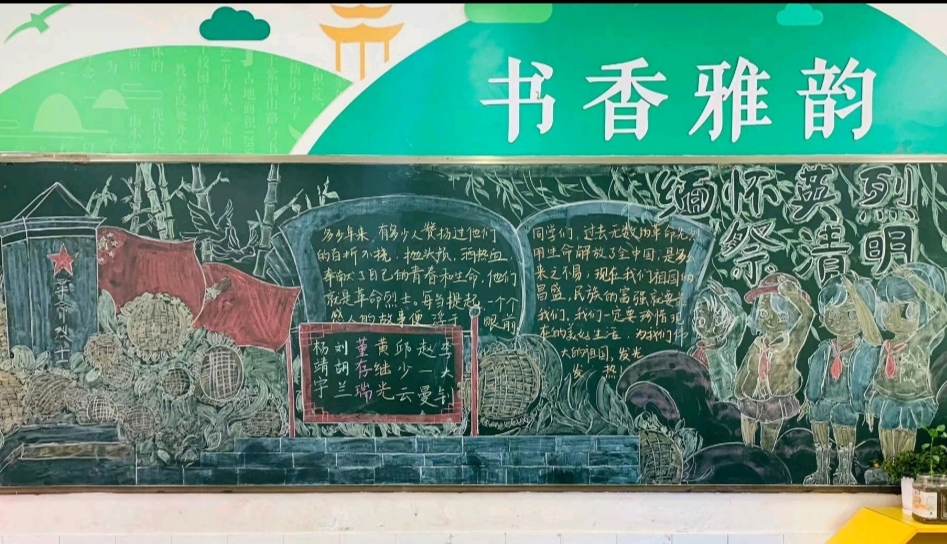 书香雅韵
缅怀英烈
祭清明
革命烈士
多少年来,有多少人赞扬过他们
的百折不挠,抛头颅、洒热血
奉献了自己的青春和生命,他们
就是革命烈士,每当提起一个个
感人的故事便浮于眼前
同学们,过去无数的革命先
用生命解放了全中国,是多
来之不易,现在我们祖国的
昌盛,民族的富强就要
我们,我们一定要珍惜现
在的美好生活,为我们伟
大的祖国,发光
发热!
李大钊
赵一曼
邱少云
黄继光
董存瑞
刘胡兰
杨靖宇